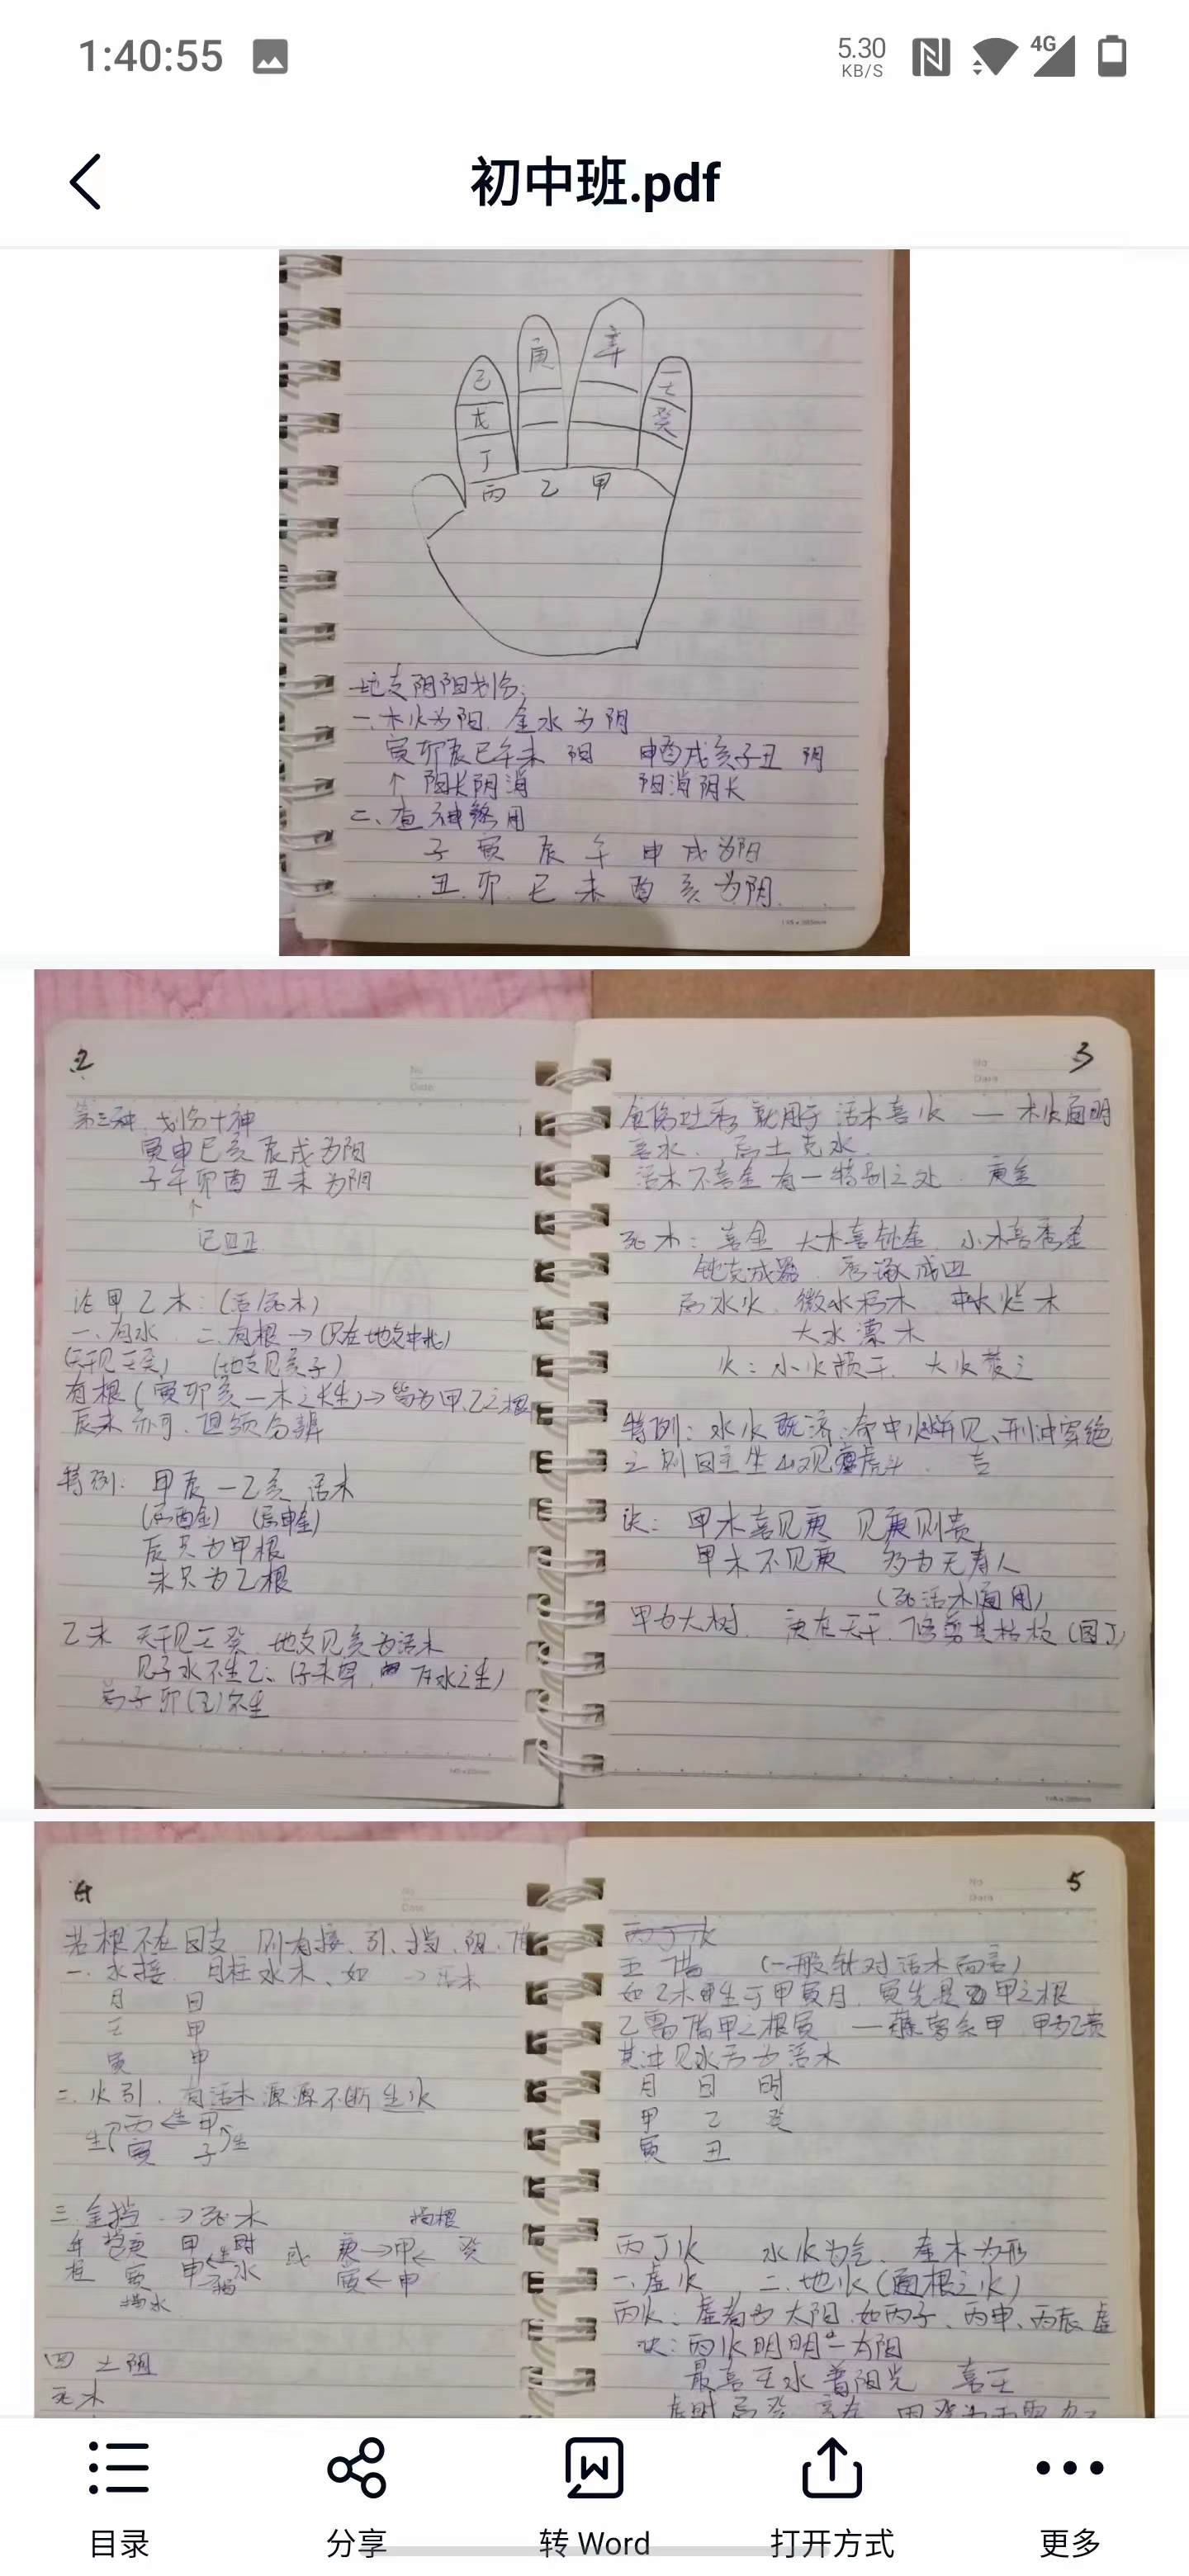 1:40:55
5.30
KB/S
4G
初中班.pdf
庚
辛
己
壬
戊
癸
丁
丙 乙 甲
地支阴阳划分:
一、木火为阳 金水为阴
寅卯辰巳午未 阳 申酉戌亥子丑 阴
↑ 阳长阴消 阳消阴长
二、查神煞用
子 寅 辰 午 申 戌为阳
丑 卯 巳 未 酉 亥为阴
2
No
Date
第三种 划分十神
寅申巳亥辰戌为阳
子午卯酉丑未为阴
↑
论甲乙木:(活/死木)
一、有水 二、有根→(只在地支中北)
(天干见壬癸) (地支见亥子)
有根(寅卯亥—木之长生)→皆为甲乙之根
辰未亦可,但须分辨
特例: 甲辰 — 乙亥 活木
(忌酉金) (忌申金)
辰只为甲根
未只为乙根
乙木 天干见壬癸,地支见亥为活木
见子水不生乙
3
No
Date
就用于 活木喜火 — 木火通明
喜水、忌土克水
活木不喜金有一特别之处 庚金
死木: 喜金 大木喜钝金 小木喜秀金
忌水火 微水朽木 中水烂木
大水漂木
火: 小火 大火焚之
特例: 水火既济:
吉
诀: 甲木喜见庚 见庚则贵
甲木不见庚 多为无寿人
(死活木通用)
甲为大树 庚在天干,修剪其枯枝
4
No
Date
若根不在日支,则有接、引、挡、阻、借
一、水接 月柱水木、如 → 活木
月 日
壬 甲
寅 申
二、火引、有活木源源不断生火
生 丙←生甲 生
寅 子
三 金挡 →死木 
年 庚 甲 时 或 庚→甲← 癸
柱 寅 申 水 寅←申
挡水
四 土阻
死木
5
No
Date
丙丁火
五 借 (一般针对活木而言)
如乙木甲生于甲寅月,寅先是甲之根
乙需借甲之根寅 —藤萝系甲
见水方为活木
月 日 时
甲 乙 癸
寅 丑
丙丁火 水火为气、金木为形
一、虚火 二、地火(通根之火)
丙火: 虚者为太阳,如丙子、丙申、丙辰 虚
诀: 丙火明明一太阳
最喜壬水普阳光 喜壬
目录
分享
转 Word
打开方式
更多